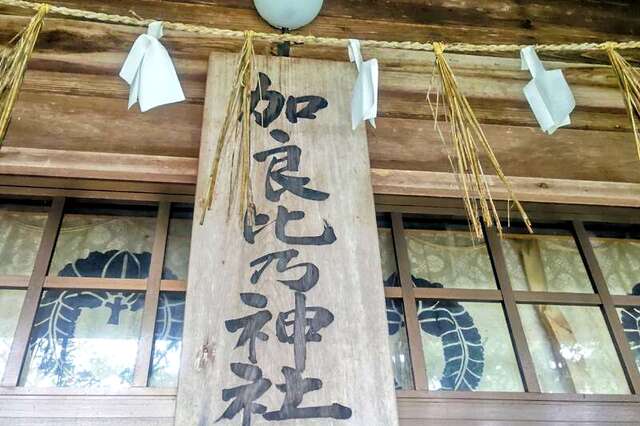 加良比乃神社